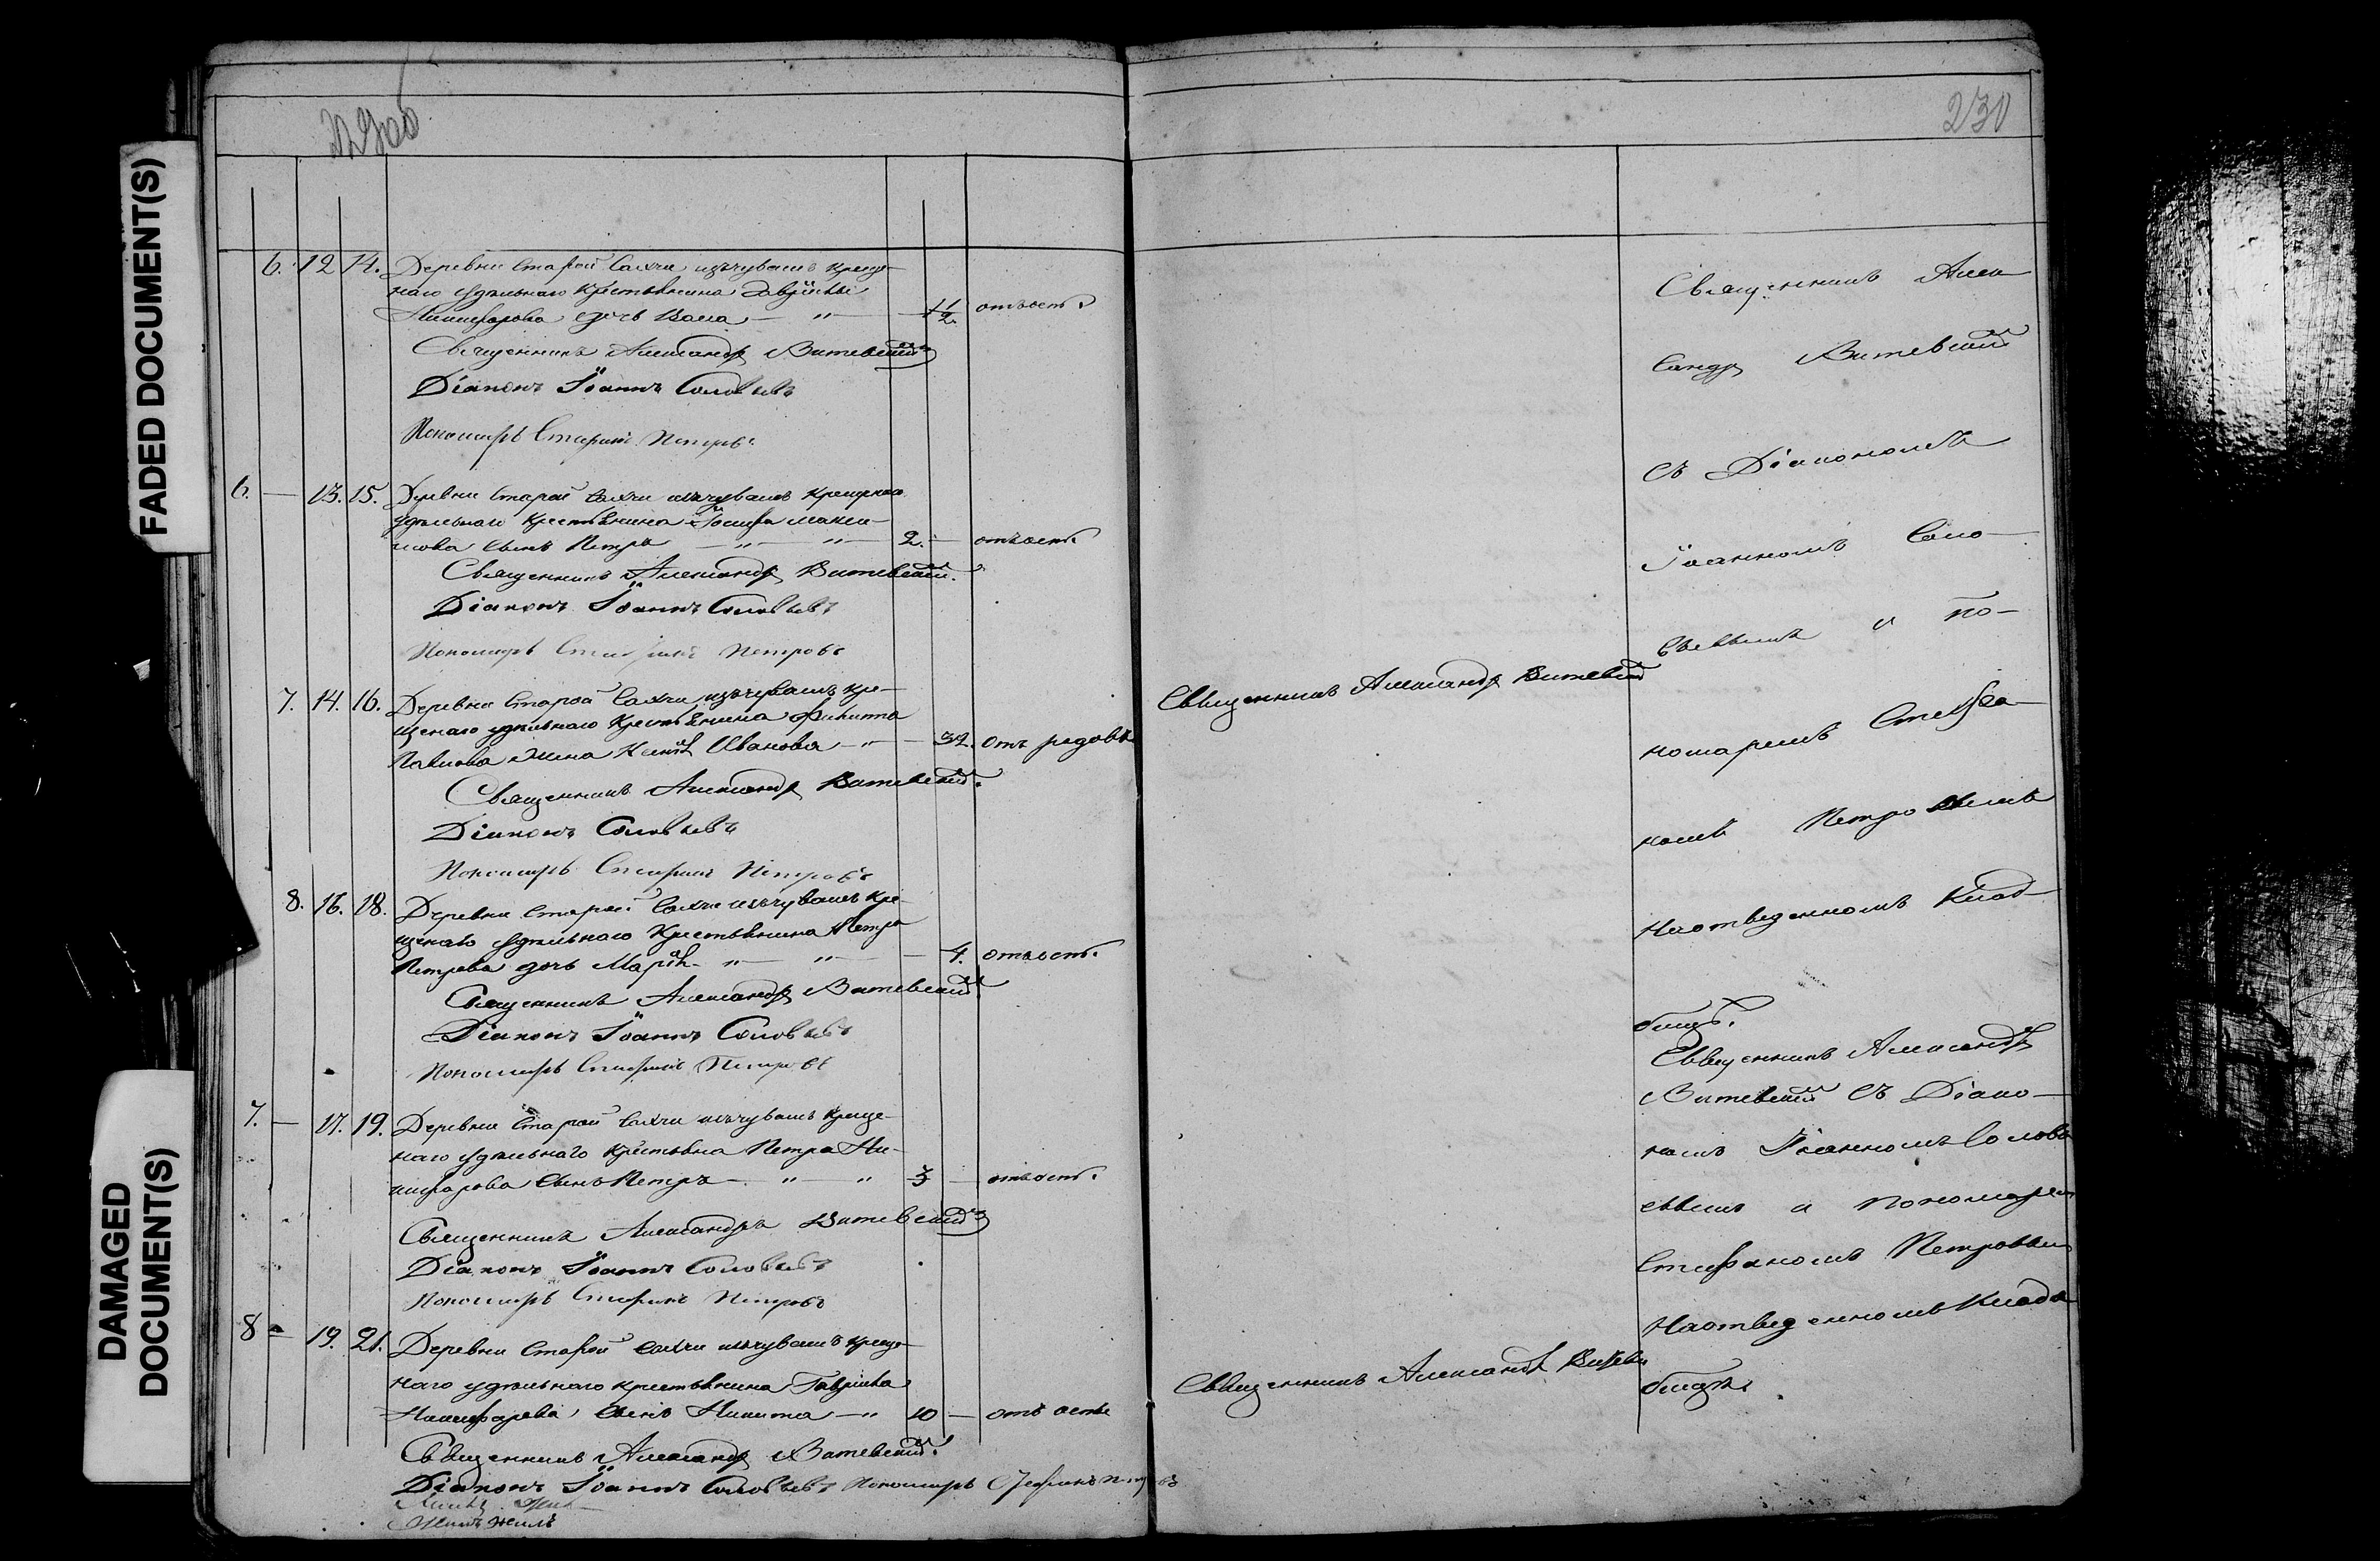 229об
230
6. 12 14. Деревни Старой Сахчи изъчувашъ креще-
наго удѣльнаго крестьянина Гавріила
Никифорова дочь — " — 1/2. отъ оспы
Священникъ Александр Витевскій
Діаконъ Іоаннъ Соловьевъ
Пономарь Стефанъ Петровъ
6. — 13. 15. Деревни Старой Сахчи изъчувашъ крещенаго
удѣльнаго крестьянина Іосифа Макси-
мова сынъ Петръ — " — " — 2. — отъ оспы
Священникъ Александр Витевскій.
Діаконъ Іоаннъ Соловьевъ
Пономарь Стефанъ Петровъ
7. 14. 16. Деревни Старой Сахчи изъчувашъ кре-
щенаго удѣльнаго крестьянина
Павлова жена Иванова — " — 32. отъ родовъ
Священникъ Александр Витевскій.
Діаконъ Соловьевъ
Пономарь Стефанъ Петровъ
8. 16. 18. Деревни Старой Сахчи изъчувашъ кре-
щенаго удѣльнаго крестьянина Петра
Петрова дочь Марія — " — " — 4. отъ оспы.
Священникъ Александр Витевскій
Діаконъ Іоаннъ Соловьевъ
Пономарь Стефанъ Петровъ
7. — 17. 19. Деревни Старой Сахчи изъчувашъ креще-
наго удѣльнаго крестьяна Петра Ни-
кифорова сынъ Петръ — " — " 3 — отъ оспы.
Священникъ Александръ Витевскій
Діаконъ Іоаннъ Соловьевъ
Пономарь Стефанъ Петровъ
8 — 19. 21. Деревни Старой Сахчи изъчувашъ креще-
наго удѣльнаго крестьянина Гавріила
Никифорова сынъ Никита — " 10 — отъ оспы
Священникъ Александр Витевскій.
Діаконъ Іоаннъ Соловьевъ Пономарь Стефанъ Петровъ
Священникъ Александр Витевскій
Священникъ Александр Витевскій
Священникъ Алек-
сандр Витевскій
съ Діакономъ
Іоанномъ Соло-
вьевымъ и по-
номаремъ Стефа-
номъ Петровымъ
На отведенномъ клад-
бищѣ.
Священникъ Александр
Витевскій съ Діако-
номъ Іоанномъ Соловь
евымъ и пономаремъ
Стефаномъ Петровым
На отведенномъ кладъ
бищѣ.